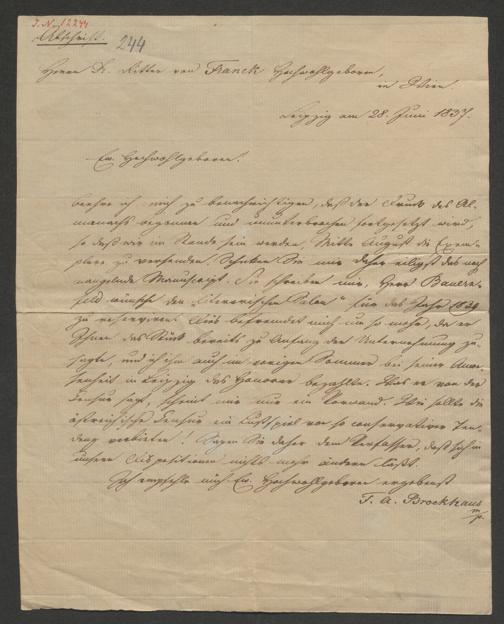 J.N. 12244
Abschrift.
244
Herrn Dr. Ritter von Franck Hochwohlgeboren,
in Wien.
Leipzig am 28. Juni 1837.
Ew. Hochwohlgeboren!
beehre ich mich zu benachrichtigen, daß der Druck des Al-
manachs begonnen und ununterbrochen fortgesetzt wird,
so daß wir im Stande sein werden, Mitte August die Exem-
plare zu versenden. Schicken Sie mir daher eiligst das noch
mangelnde Manuscript. Sie schreiben mir, Herr Bauern-
feld wünsche den „literarischen Salon" für das Jahr 1839
zu reserviren. Dies befremdet mich um so mehr, da er
Ihnen das Stück bereits zu Anfang der Unternehmung zu-
sagte, und ich ihm auch im vorigen Sommer bei seiner Anwe-
senheit in Leipzig das Honorar bezahlte. Was er von der
Censur sagt, scheint mir nur ein Vorwand. Wie sollte die
östreichische Censur ein Lustspiel von so conservativer Ten-
denz verbieten! Sagen Sie daher dem Verfasser, daß sich in
unsern Dispositionen nichts mehr ändern läßt.
Ich empfehle mich Ew. Hochwohlgeboren ergebenst
F. A. Brockhaus
m/p.